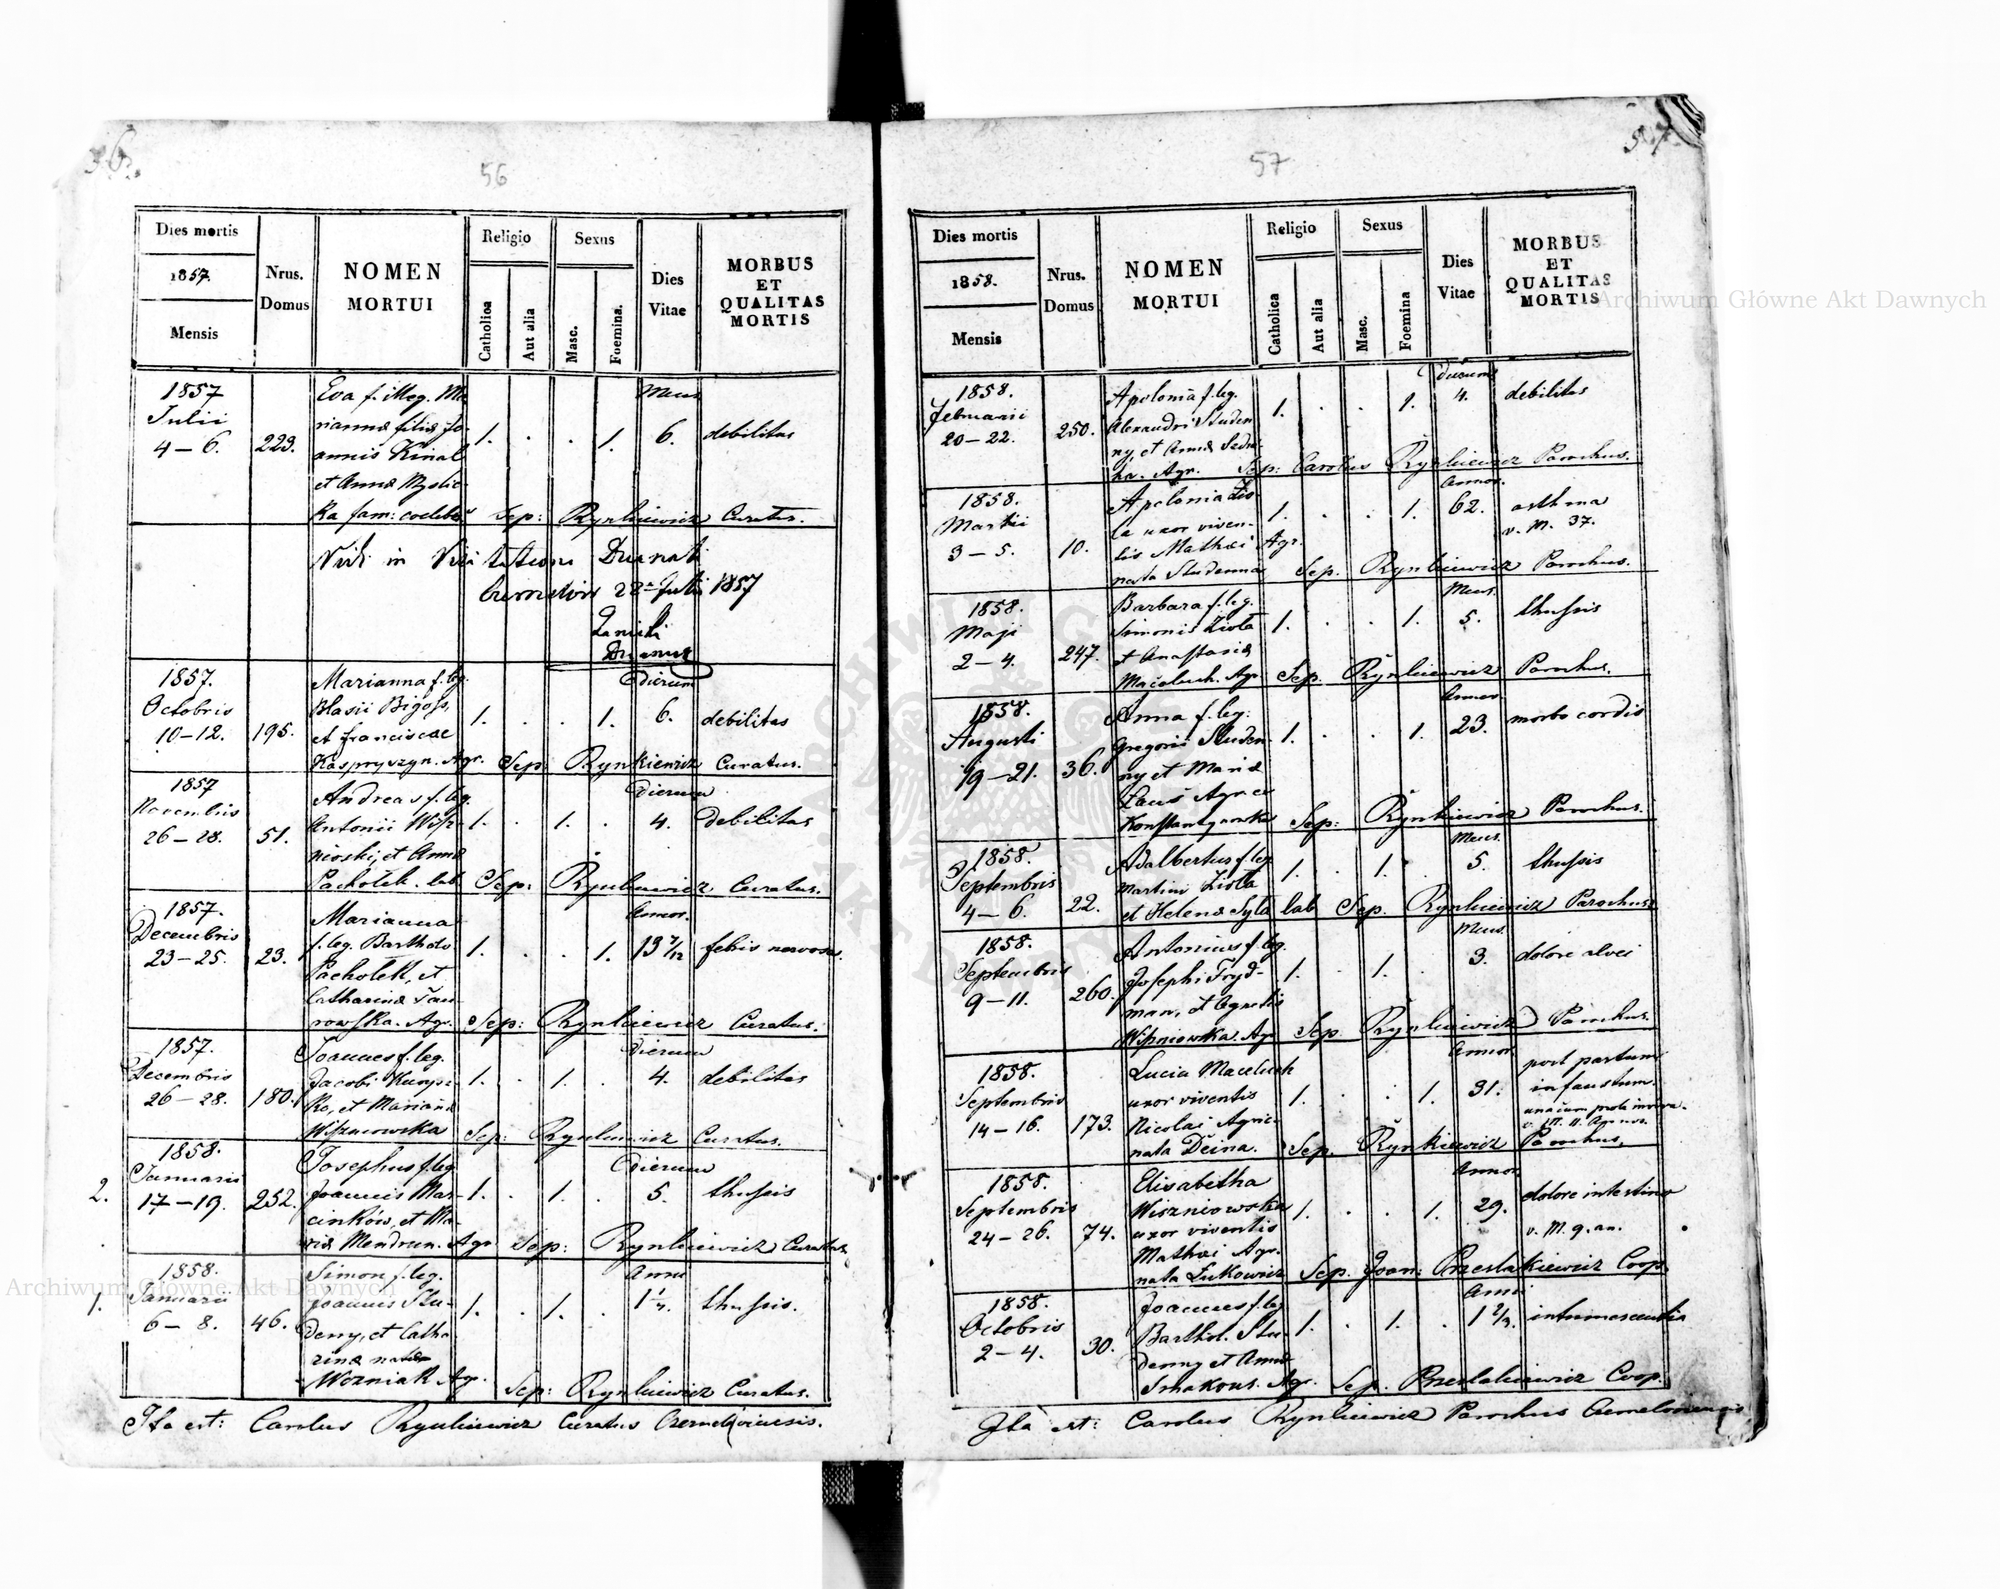 36.
56
Dies mortis
1857.
Mensis
Nrus.
Domus
NOMEN
MORTUI
Religio
Catholica
Aut alia
Sexus
Masc.
Foemina.
Dies
Vitae
MORBUS
ET
QUALITAS
MORTIS
1857
Julii
4 – 6.
223.
Eva f. illeg. Ma
rianna filia Jo-
annis Kinal
et Anna
Ka fam: coelebs
1. . . 1.
Mens.
6.
debilitas
Sep: Rynkiewicz Curatus.
Vidi in Visitatione Decanali
22a Julii 1857
Decanus
1857.
Octobris
10–12.
195.
Marianna f. leg.
Blasii Bigoss,
et Franciscae
Kaspryszyn. Agr.
1. . . 1.
Dierum
6.
debilitas
Sep: Rynkiewicz Curatus.
1857
Novembris
26 – 28.
51.
Andreas f. leg.
Antonii Wisz-
nioski, et Anna
Pachołek. lab
1. . 1. .
Dierum
4.
debilitas
Sep: Rynkiewicz Curatus.
1857.
Decembris
23 – 25.
23.
Marianna
f. leg. Barthol:
Pachołek, et
Catharina
rowska. Agr.
1. . . 1.
Annor.
13 7/12
febis nervosa.
Sep: Rynkiewicz Curatus.
1857.
Decembris
26 – 28.
180.
Joannes f. leg.
Jacobi
ko, et Marianna
Wiszniowska
1. . 1. .
Dierum
4.
debilitas
Sep: Rynkiewicz Curatus.
2.
1858.
Januarii
17 – 19.
252.
Josephus f. leg.
Joannis Mar-
cinków, et Ma-
ria Mendrun. Agr
1. . 1. .
Dierum
5.
thussis
Sep: Rynkiewicz Curatus.
1.
1858.
Januarii
6 – 8.
46.
Simon f. leg.
Joannis Stu-
denny, et Catha-
rina nata
Wozniak Agr.
1. . 1. .
Anni
thussis.
Sep: Rynkiewicz Curatus.
Ita est: Carolus Rynkiewicz Curatus
57.
57
Dies mortis
1858.
Mensis
Nrus.
Domus
NOMEN
MORTUI
Religio
Catholica
Aut alia
Sexus
Masc.
Foemina
Dies
Vitae
MORBUS
ET
QUALITAS
MORTIS
1858.
Februarii
20–22.
250.
Apolonia f. leg.
Alexandri Studen
ny, et Anna
Agr.
1. . . 1.
Dierum
4.
debilitas
Sep: Carolus Rynkiewicz Parochus.
1858.
Martii
3 – 5.
10.
Apolonia
la uxor viven-
tis Mathei Agr.
nata Studenna
1. . . 1.
Annor.
62.
asthma
v. M. 37.
Sep. Rynkiewicz Parochus.
1858.
Maji
2 – 4.
247.
Barbara f. leg.
Simonis Zioła
et Anastasia
Maceluch. Agr
1. . . 1.
Mens.
5.
thussis
Sep. Rynkiewicz Parochus.
1858.
Augusti
19 – 21.
36.
Anna f. leg:
Gregorii Studen-
ny et Maria
Zaus Agr. ex
1. . . 1.
Annor.
23.
morbo cordis
Sep: Rynkiewicz Parochus.
1858.
Septembris
4 – 6.
22.
Adalbertus f. leg
Martini Zioła
et Helena Syla lab
1. . 1. .
Mens.
5.
thussis
Sep. Rynkiewicz Parochus
1858.
Septembris
9 – 11.
260.
Antonius f. leg.
Josephi Fryd-
man, et Agnetis
Wiszniowska. Agr
1. . 1. .
Mens.
3.
dolore alvei
Sep. Rynkiewicz Parochus.
1858.
Septembris
14 – 16.
173.
Lucia Maceluch
uxor viventis
Nicolai Agric
nata Deina.
1. . . 1.
Annor.
31.
post partum
infaustum.
una cum prole
v. M. 11. Annor.
Sep. Rynkiewicz Parochus.
1858.
Septembris
24 – 26.
74.
Elisabetha
Wiszniowska
uxor viventis
Mathei Agr.
nata Łukowicz
1. . . 1.
Annor.
29.
dolore intestino
v. M. 9. an.
Sep. Joan: Przesłakiewicz Coop.
1858.
Octobris
2 – 4.
30.
Joannes f. leg
Barthol. Stu-
denny et Anna
Smakous. Agr.
1. . 1. .
Anni
intumescentia
Sep. Przesłakiewicz Coop.
Ita est: Carolus Rynkiewicz Parochus
Archiwum Główne Akt Dawnych
Archiwum Główne Akt Dawnych